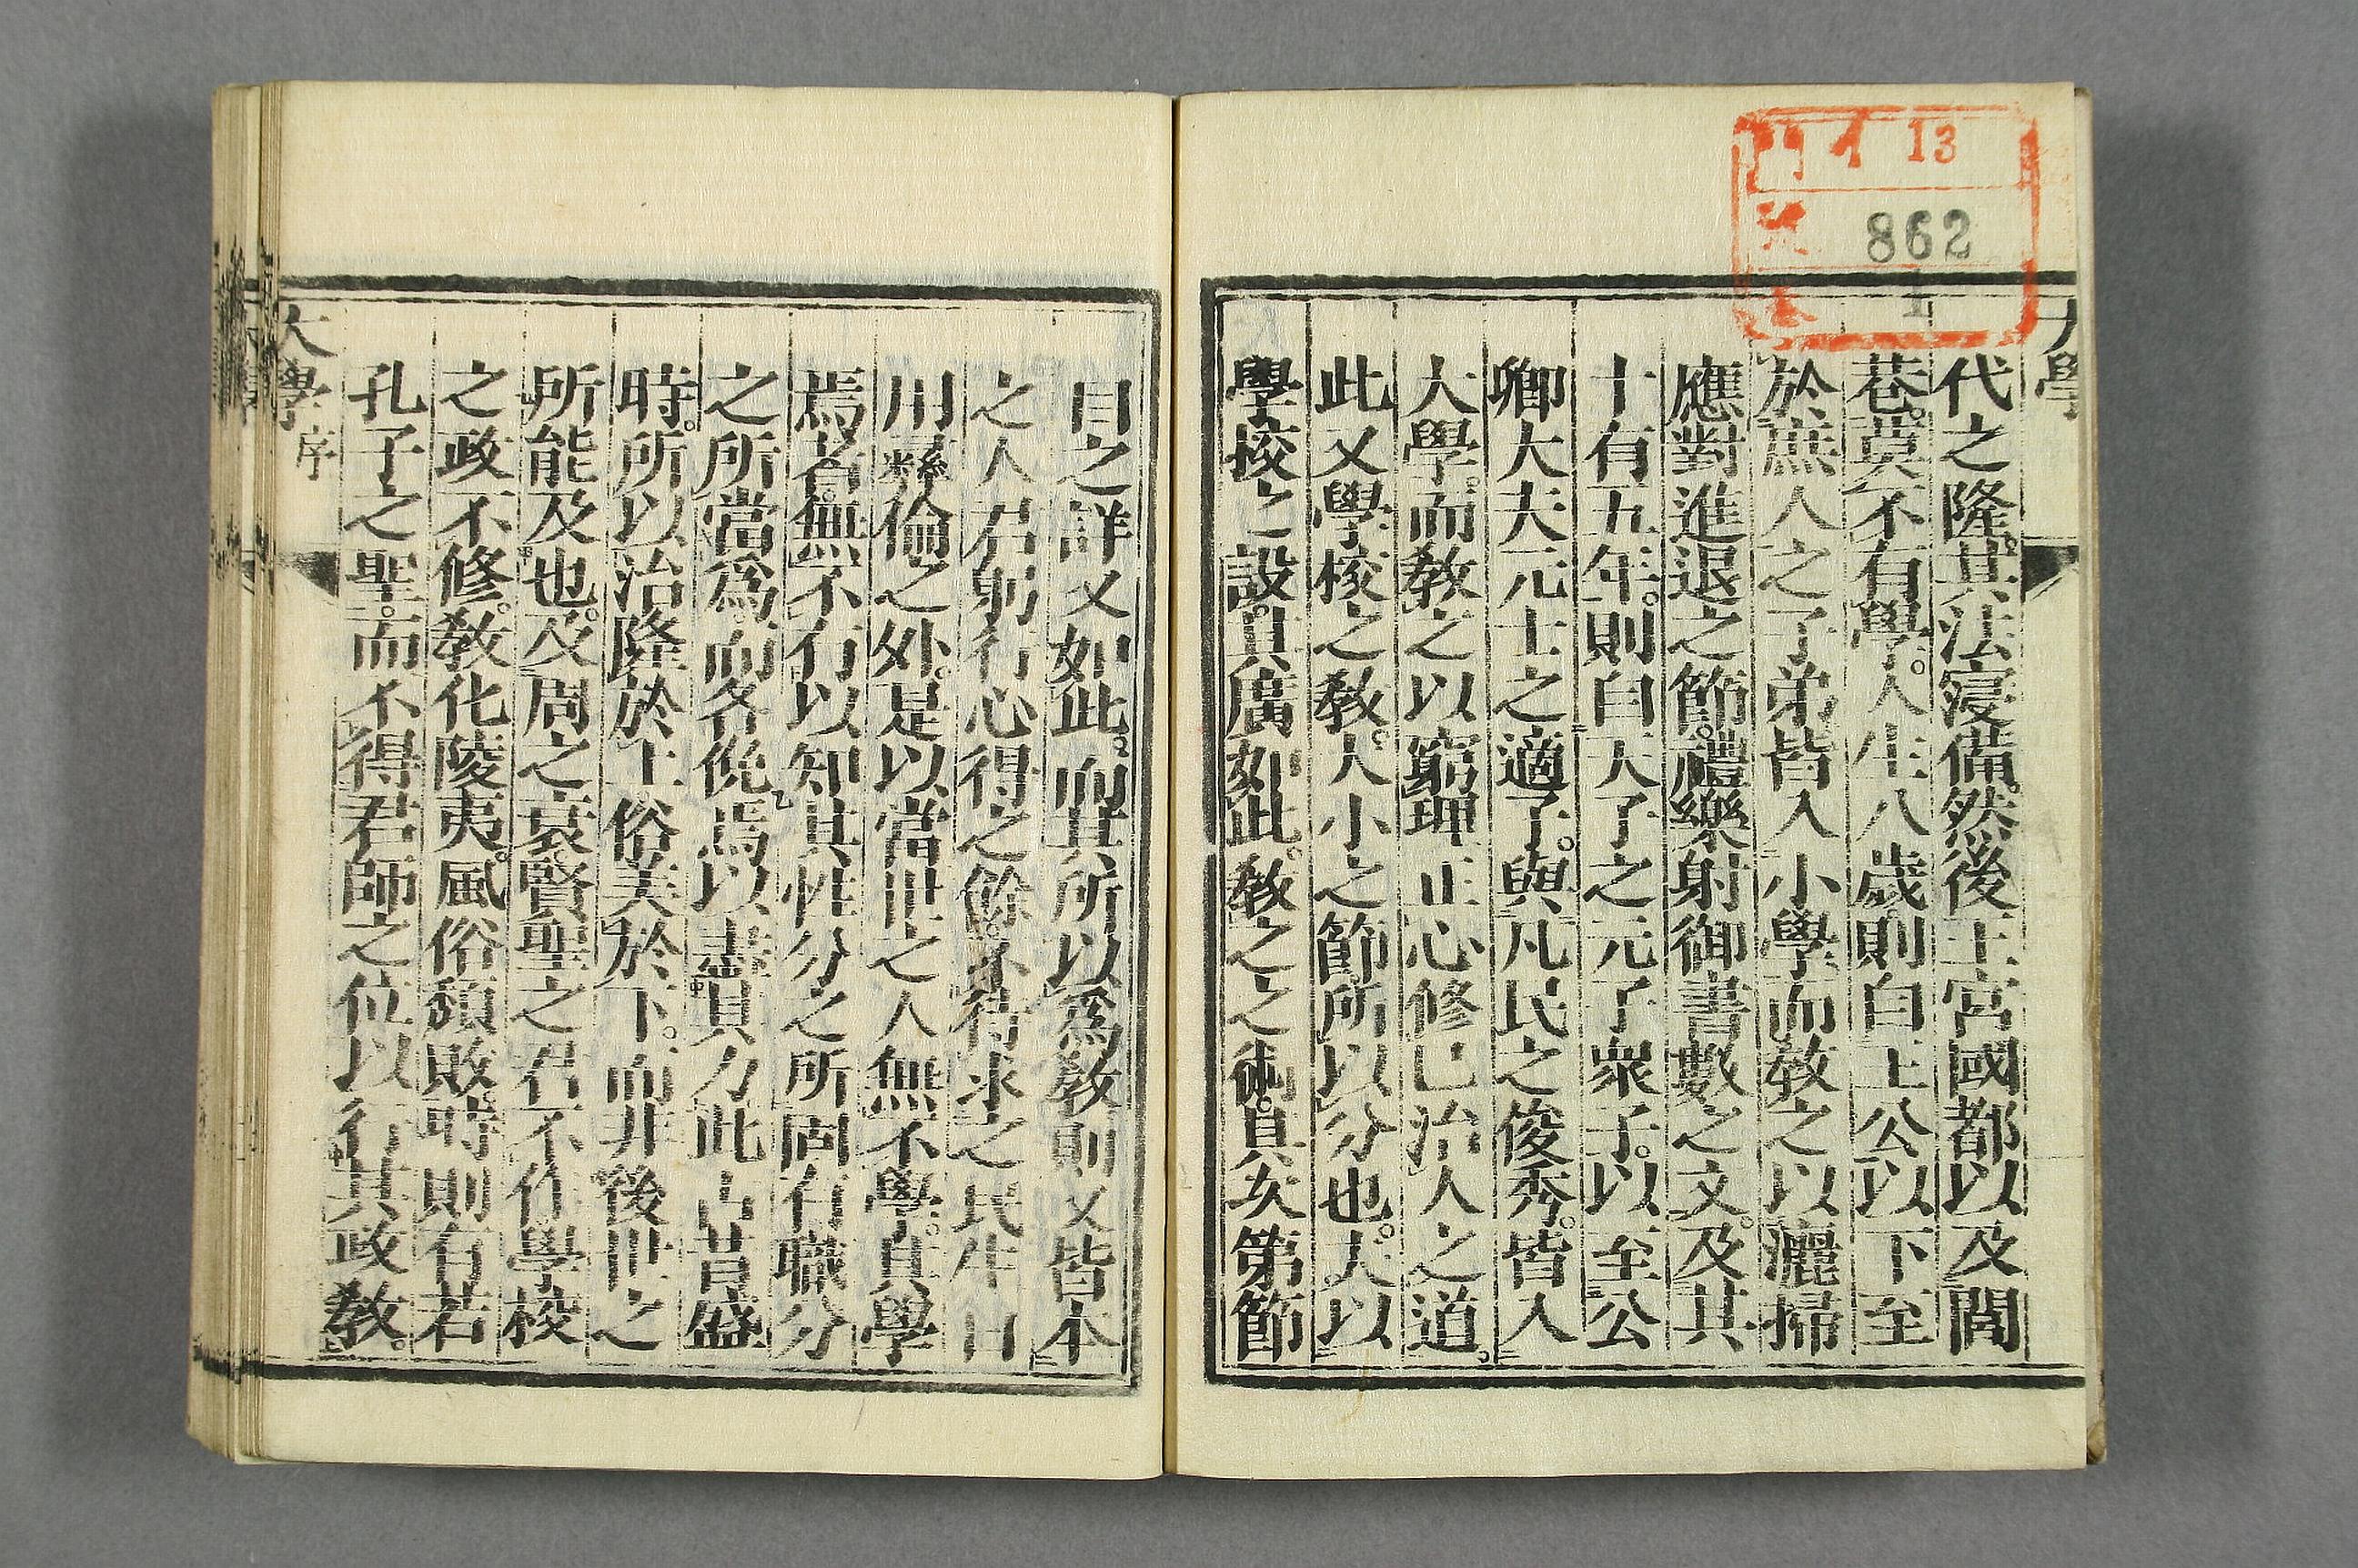 門 イ 13
號 862
卷 1
大學
代之隆。其法寖備。然後王宮國都以及閭
巷。莫不有學。人生八歲。則自王公以下至
於庶人之子弟皆入小學而敎之以灑掃
應對進退之節。禮樂射御書數之文。及其
十有五年。則自天子之元子衆子。以至公
卿大夫元士之適子。與凡民之俊秀。皆入
大學。而敎之以窮理正心修己治人之道。
此又學校之敎。大小之節所以分也。夫以
學校之設。其廣如此。敎之之術。其次第節
目之詳又如此。而其所以爲敎則又皆本
之人君躬行心得之餘。不待求之民生日
用彝倫之外。是以當世之人無不學。其學
焉者。無不有以知其性分之所固有職分
之所當爲。而各俛焉以盡其力此古昔盛
時。所以治隆於上俗美於下。而非後世之
所能及也。及周之衰。賢聖之君不作學校
之政不修。敎化陵夷。風俗頹敗。時則有若
孔子之聖。而不得君師之位以行其政敎。
大學 序